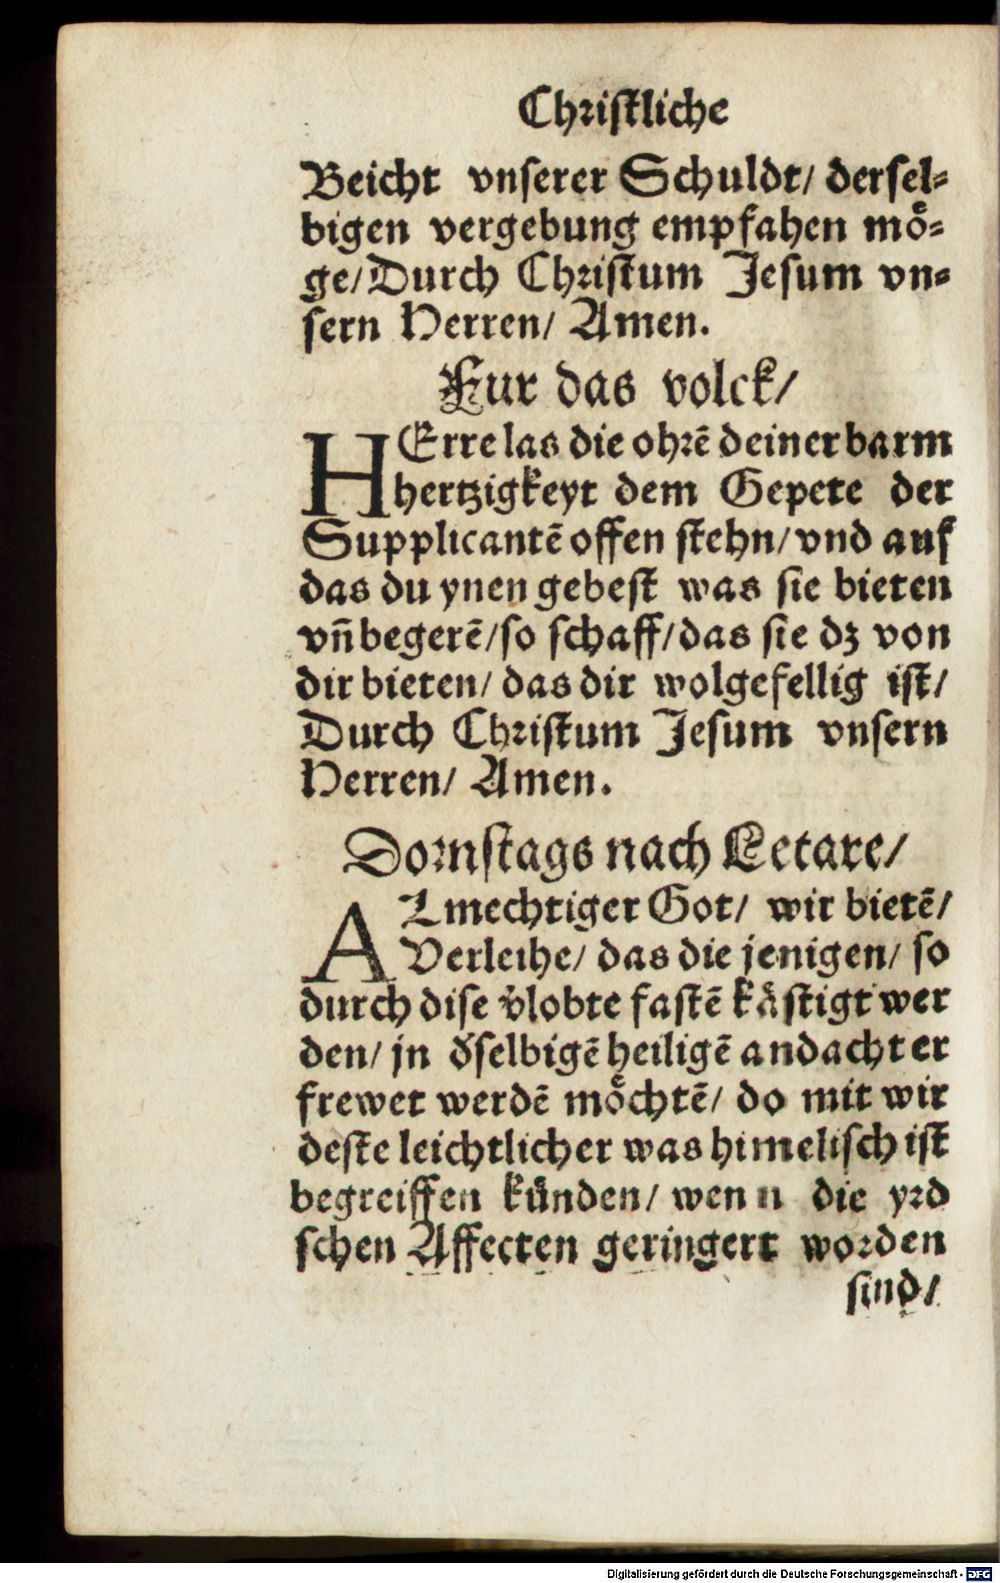 Christliche
Beicht vnserer Schuldt/ dersel⸗
bigen vergebung empfahen moͤ⸗
ge/Durch Christum Jesum vn⸗
sern Herren/ Amen.
Fur das volck/
HErre las die ohrē deiner barm
hertzigkeyt dem Gepete der
Supplicantē offen stehn/vnd auf
das du ynen gebest was sie bieten
vn̄ begerē/so schaff/das sie dz von
dir bieten/ das dir wolgefellig ist/
Durch Christum Jesum vnsern
Herren/ Amen.
Dornstags nach Letare/
ALmechtiger Got/ wir bietē/
Verleihe/ das die jenigen/ so
durch dise v̓lobte fastē kåstigt wer
den/ jn d̓selbigē heiligē andacht er
frewet werdē moͤchtē/ do mit wir
deste leichtlicher was himelisch ist
begreiffen kuͤnden/ wenn die yrd
schen Affecten geringert worden
sind/
Digitalisierung gefördert durch die Deutsche Forschungsgemeinschaft - DFG